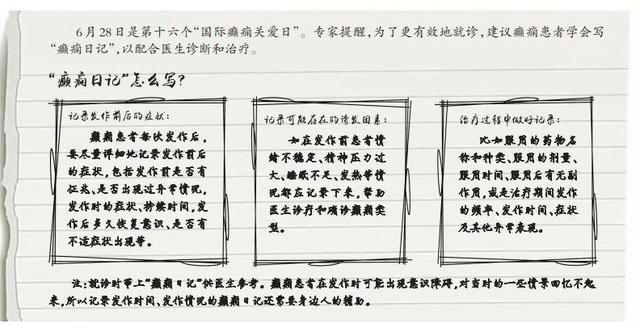 6月28日是第十六个“国际癫痫关爱日”。专家提醒,为了更有效地就诊,建议癫痫患者学会写
“癫痫日记”,以配合医生诊断和治疗。
“癫痫日记”怎么写?
记录发作前后的症状:
癫痫患者每次发作后,
要尽量详细地记录发作前后
的症状,包括发作前是否有
征兆、是否出现过异常情况,
发作时的症状、持续时间,发
作后多久恢复意识、是否有
不适症状出现等。
记录可能存在的诱发因素:
如在发作前患者情
绪不稳定、精神压力过
大、睡眠不足、发热等情
况都应记录下来,帮助
医生诊疗和确诊癫痫类
型。
治疗过程中做好记录:
比如服用的药物名
称和种类、服用的剂量、
服用时间、服用后有无副
作用,或是治疗期间发作
的频率、发作时间、症状
及其他异常表现。
注:就诊时带上“癫痫日记”供医生参考。癫痫患者在发作时可能出现意识障碍,对当时的一些情景回忆不起
来,所以记录发作时间、发作情况的癫痫日记还需要身边人的辅助。